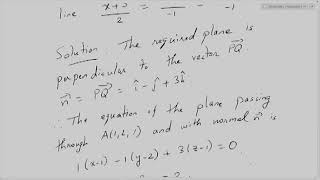 line x+3/2 = /-1 = -1
Solution. The required plane is
perpendicular to the vector PQ→
n→ = PQ→ = î - ĵ + 3k̂
∴ The equation of the plane passing
through A(1,2,1) and with normal n→ is
1(x-1) -1(y-2) + 3(z-1) = 0